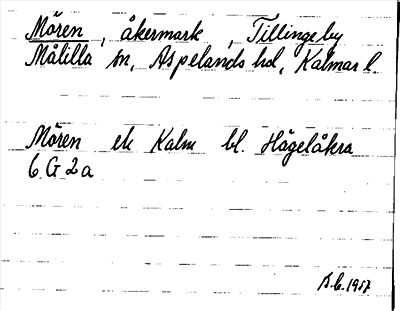 Mören, åkermark, Tillingeby
Målilla sn, Aspelands hd, Kalmar l.
Mören ek Kalm bl. Hägelåkra
6 G 2 a
B.C. 1957